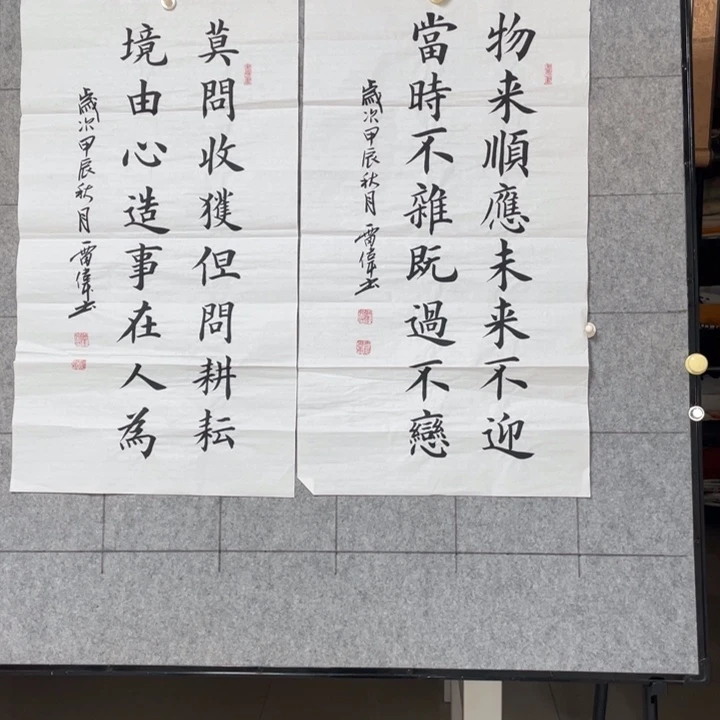 物来順應未来不迎
當時不雜既過不戀
歲次甲辰秋月雷偉書
莫問收獲但問耕耘
境由心造事在人為
歲次甲辰秋月雷偉書